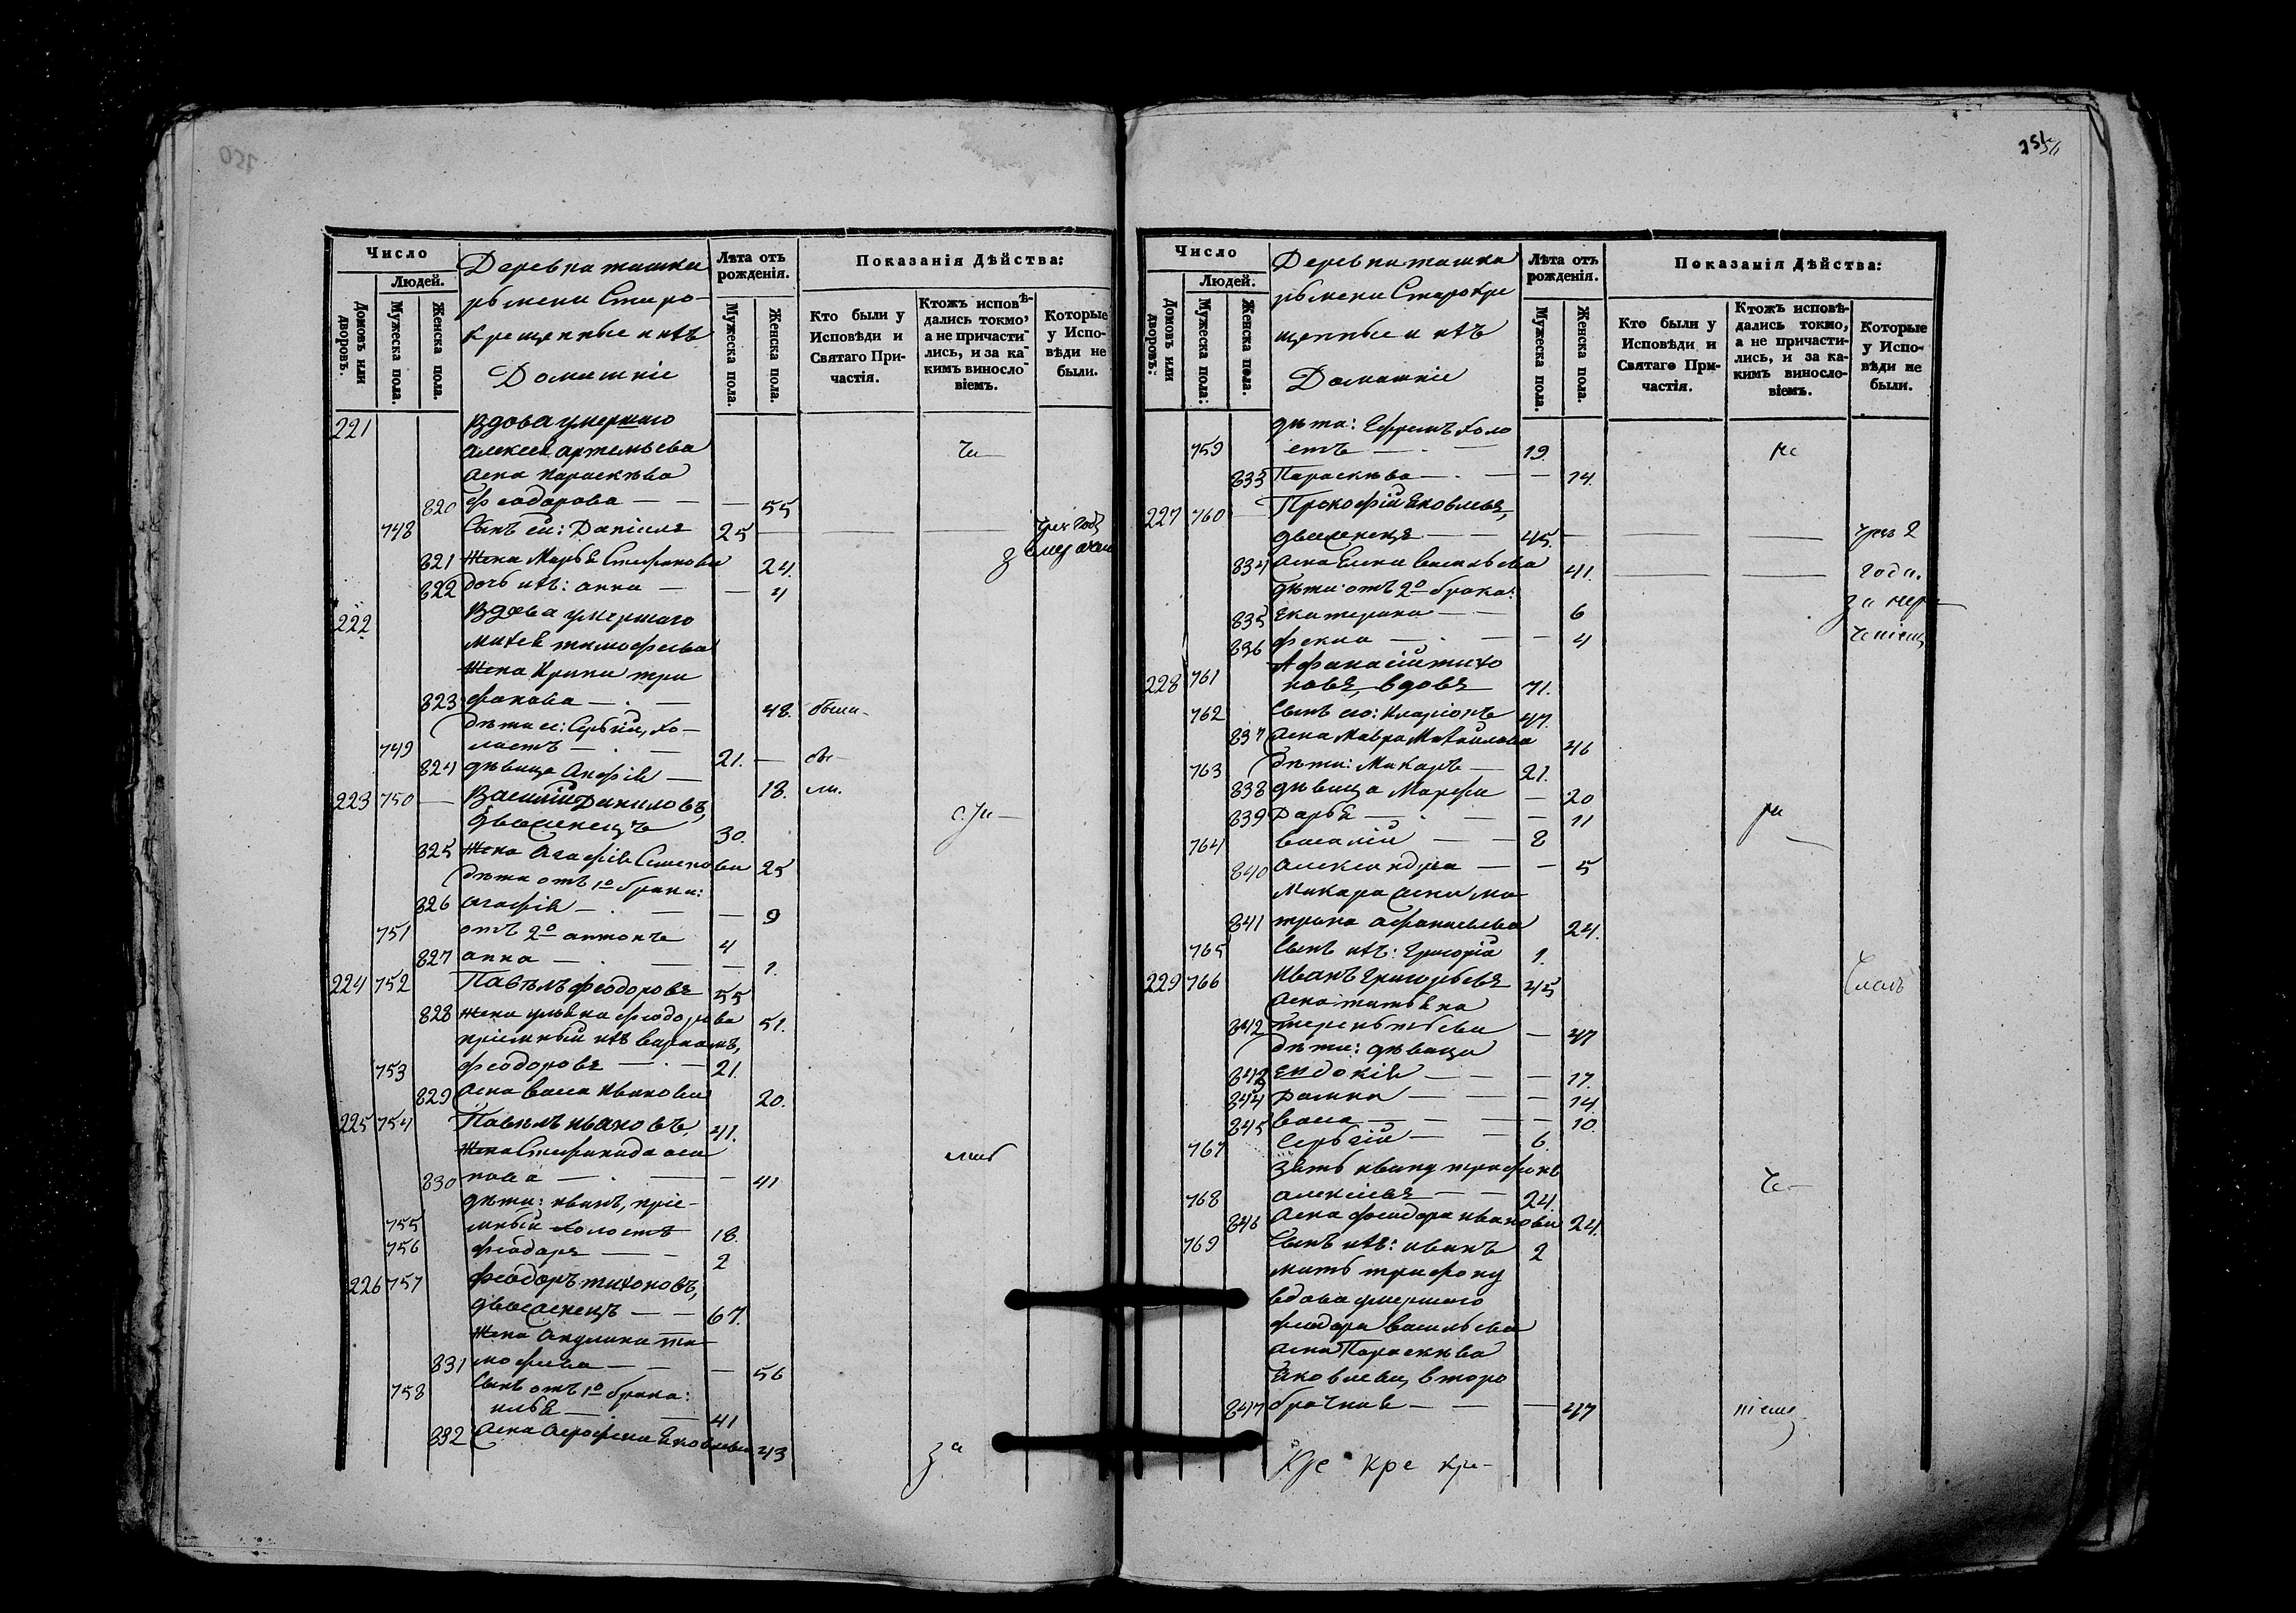 Число
Людей.
Домовъ или дворовъ.
Мужеска пола.
Женска пола.
Деревна ташки
рьмени Старо-
крещенные и ихъ
Домашніе
Лѣта отъ рожденія.
Мужеска пола.
Женска пола.
Показанія Дѣйства:
Кто были у Исповѣди и Святаго При-частія.
Ктожъ исповѣ-дались токмо, а не причасти-лись, и за ка-кимъ винословіемъ.
Которые у Испо-вѣди не были.
221 Вдова умершаго
Алексея Артемьева
жена Параскѣва
820 Феодорова — — — 55
748 Сынъ ей: Даніилъ 25
821 Жена Марья Стефанова 24.
822 дочь ихъ: Анна — — 4
222 Вдова умершаго
Михея Тимофеева
Жена Ирина Три
823 фанова — . — 48. были-
дѣти ее: Сергій, хо-
749 лостъ — . — 21.
824 дѣвица Анфія — 18.
223 750 — Василій Даниловъ,
двоеженецъ 30.
825 Жена Агафія Семенова 25
дѣти отъ 1º брака:
826 Агафія — . — — 9
751 отъ 2º Антонъ 4
827 Анна — . — — 1.
224 752 Павелъ Феодоровъ 55
828 Жена Ульяна Феодорова 51.
пріемный ихъ Варлаамъ,
753 Феодоровъ — . — 21.
829 жена Васса Иванова 20.
225 754 Павелъ Ивановъ, 41.
Жена Стефанида Оси
830 пова — . — — 41
дѣти: Иванъ, пріе-
755 мный холостъ 18.
756 Феодоръ — — 2
226 757 Феодоръ Тихоновъ,
двоеженецъ — — 67.
Жена Акулина Ти
831 мофеева — — — 56
758 Сынъ отъ 1º брака:
Илья — . — 41
832 жена Аграфена Яковлева 43 за
Число
Людей.
Домовъ или дворовъ.
Мужеска пола.
Женска пола.
Деревна ташка
рьмени Старокре
щенные и ихъ
Домашніе
Лѣта отъ рожденія.
Мужеска пола.
Женска пола.
Показанія Дѣйства:
Кто были у Исповѣди и Святаго При-частія.
Ктожъ исповѣ-дались токмо, а не причасти-лись, и за ка-кимъ винословіемъ.
Которые у Испо-вѣди не были.
дѣти: Ефремъ холо
759 стъ — . — 19.
833 Параскѣва — . — — 14.
227 760 Прокофій Яковлевъ,
двоеженецъ — — 45. — — — чрез 2
834 жена Елена Васильева 41. — — года.
дѣти отъ 2º брака:
835 Екатерина — — 6
836 Фекла — . — — 4
228 761 Афанасій Тихо
новъ, вдовъ 71.
762 Сынъ его: Иларіонъ 47.
837 жена Мавра Михайлова 46
763 дѣти: Макаръ — 21.
838 дѣвица Марфа — 20
839 Дарья — . — — 11
764 Василій — — 8
840 Александра — — 5
Макара жена Ма
841 трона Афанасьева 24.
765 Сынъ ихъ: Григорій 1.
229 766 Иванъ Григорьевъ 45
жена Татьяна
842 Терентьева — 47
дѣти: дѣвица
843 Евдокія — — — 17.
844 Домна — — — 14
845 Васса — — — 10.
767 Сергій — — 6
Зять Ивану Трифонъ
768 Алексіевъ — — 24.
846 жена Феодора Иванова 24.
769 Сынъ ихъ: Иванъ 2
мать Трифону
вдова умершаго
Феодора Васильева
жена Параскѣва
Яковлева, второ
847 брачная — — — 47
Кре кре кре-